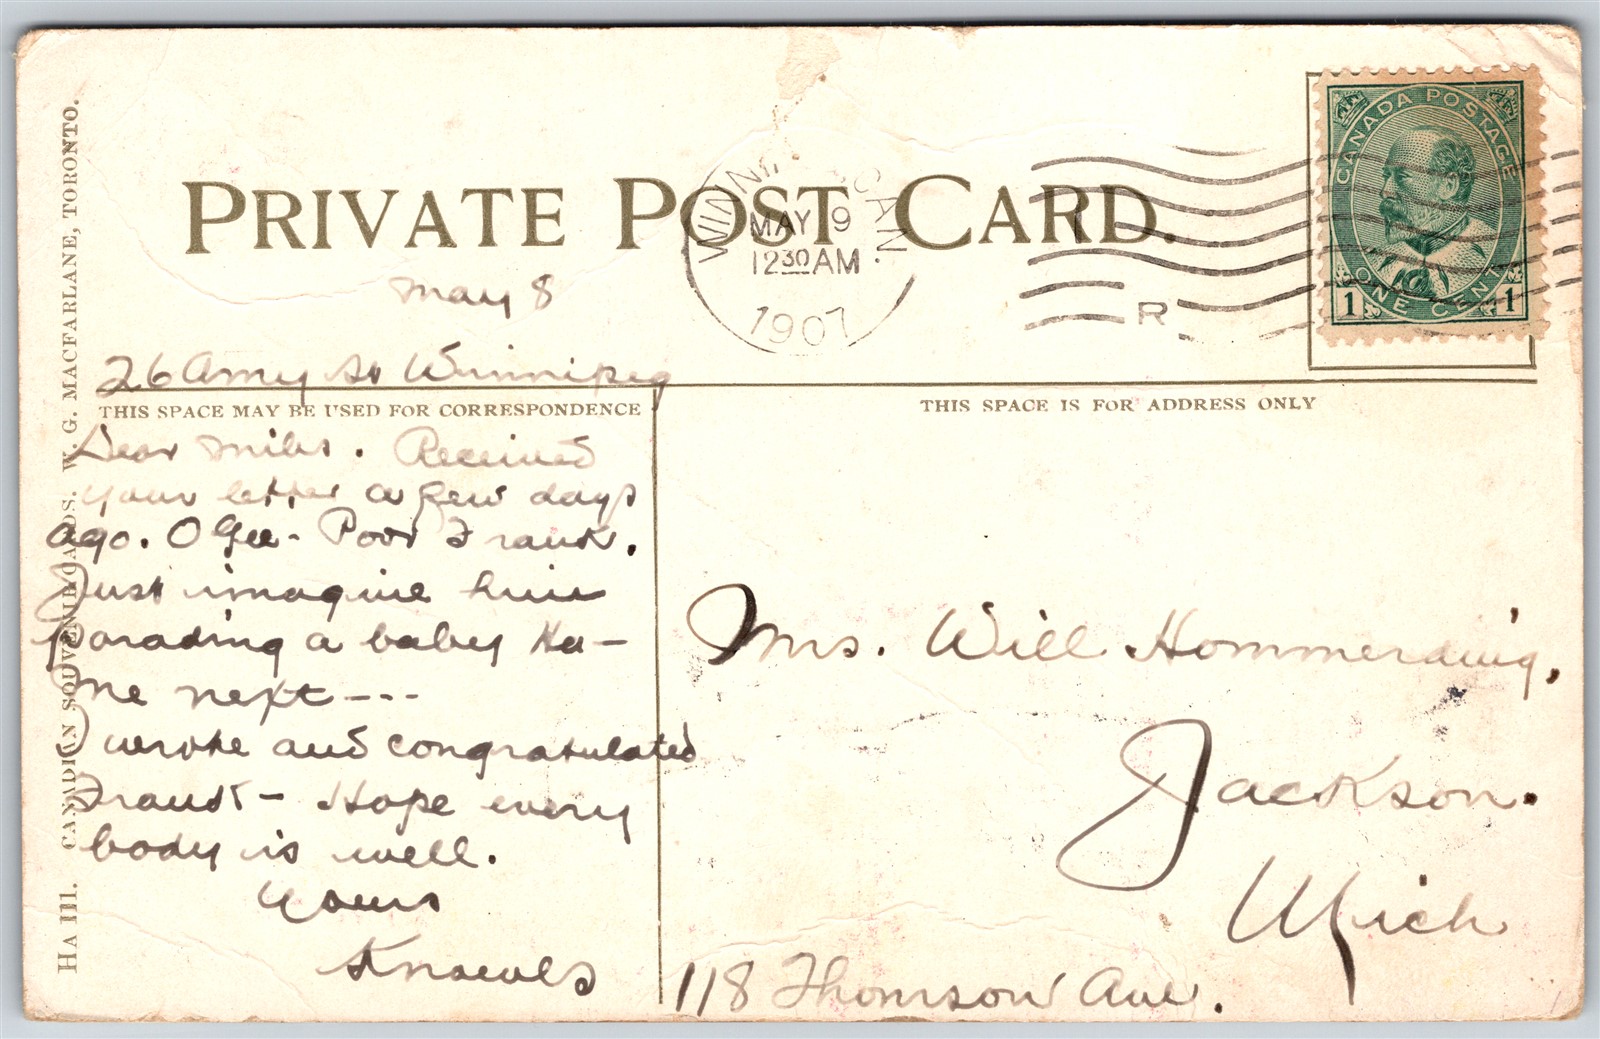 PRIVATE POST CARD.
CANADA POSTAGE
ONE CENT
1 1
WINNI CAN.
MAY 9
12 30 AM
1907
R
May 8
26 Amy St Winnipeg
THIS SPACE MAY BE USED FOR CORRESPONDENCE
THIS SPACE IS FOR ADDRESS ONLY
Dear Miles. Received
your letter a few days
ago. O Gee - Poor Frank.
Just imagine him
parading a baby
me next ---
I wrote and congratulated
Frank - Hope every
body is well.
Yours
Mrs. Will Hommerding,
Jackson.
Mich
118 Thomson Ave.
HA 111. CANADIAN SOUVENIR CARDS. W. G. MACFARLANE, TORONTO.